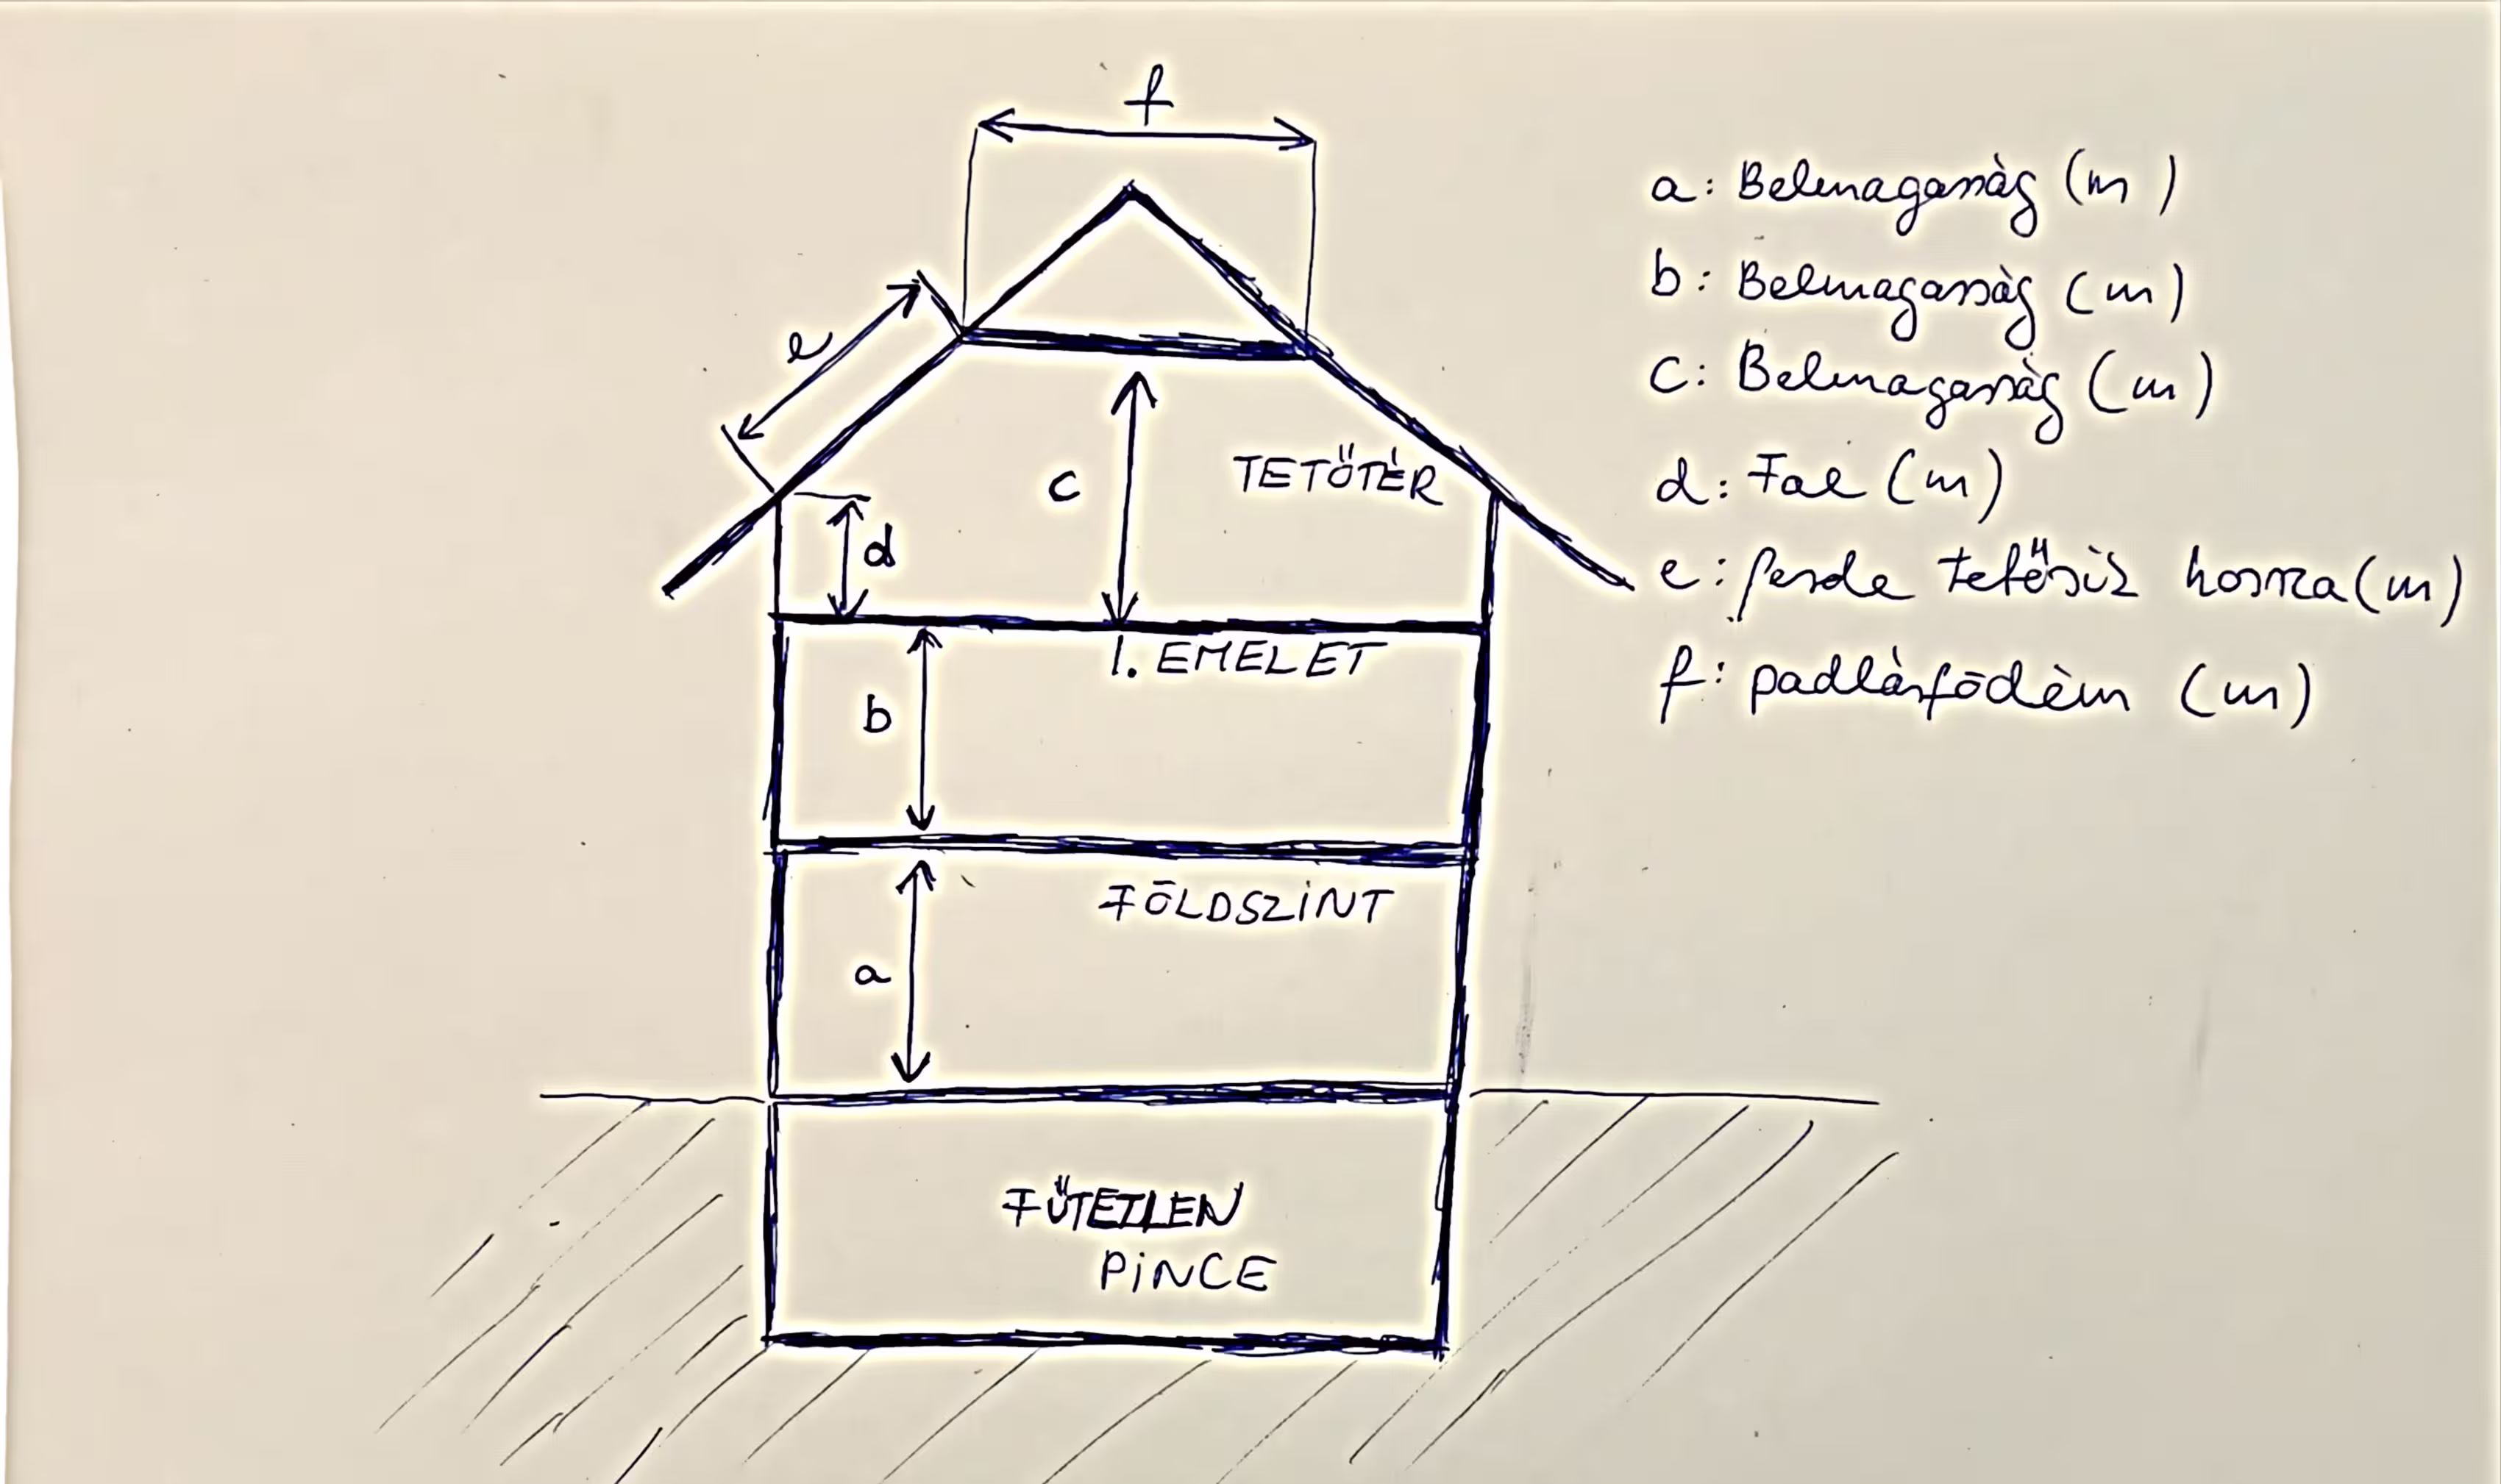 f
a: Belmagasság (m)
b: Belmagasság (m)
c: Belmagasság (m)
d: Fal (m)
e: ferde tetősík hossza (m)
f: padlásfödém (m)
e
c
TETŐTÉR
d
1. EMELET
b
FÖLDSZINT
a
FŰTETLEN
PINCE